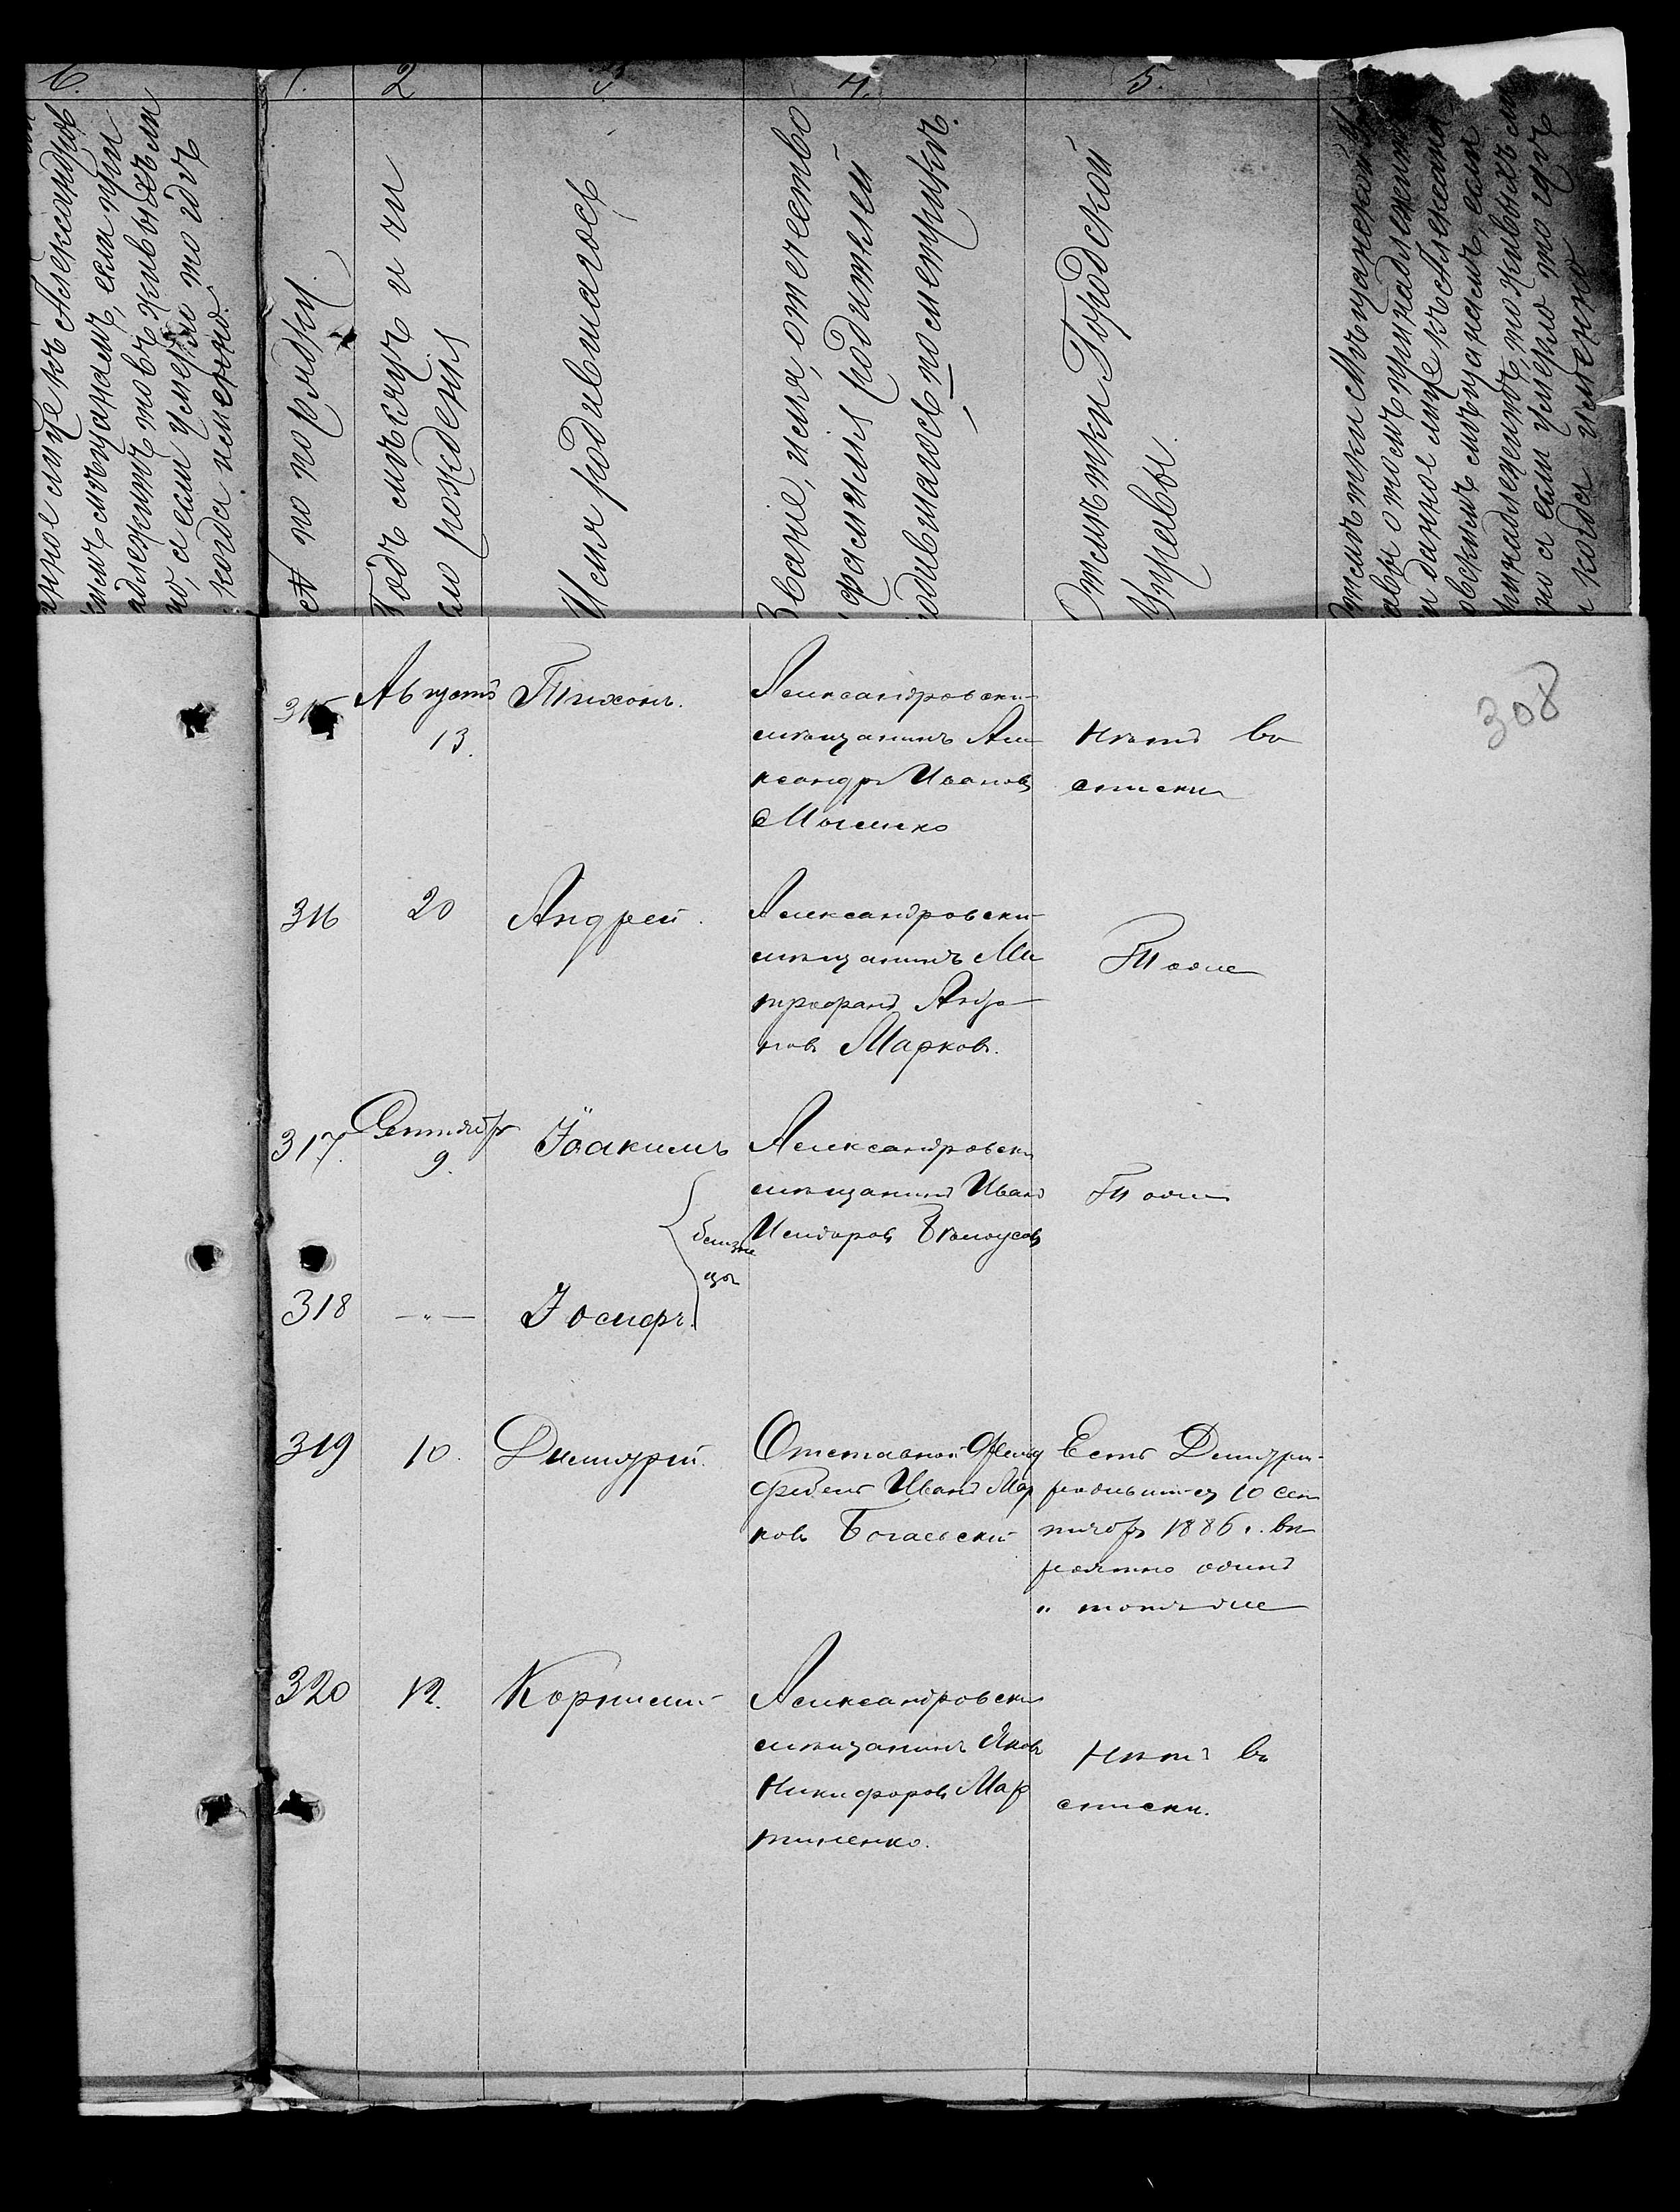 6.
1.
2
3
4.
5.
нное лице къ Александров
скимъ мѣщанамъ, если при
надлежитъ то въ живыхъ ли
но, а если умерло то гдѣ
и когда именно.
№ по порядку.
Годъ мѣсяцъ и чи
сло рожденія
Имя родившагося
Званіе, имя, отчество
и фамилія родителей
родившагося по метрикѣ.
Отмѣтки Городской
Управы.
Отмѣтки Мѣщанской Уп
равы о томъ принадлежитъ
ли данное лице къ Александ
ровскимъ мѣщанамъ, если
принадлежитъ, то живыхъ ли
оно а если умерло то гдѣ
и когда именно
308
315
Августъ
13.
Тихонъ.
Александровскій
мѣщанинъ Але
ксандръ Ивановъ
Нѣтъ въ
списки
316
20
Андрей.
Александровскій
мѣщанинъ Ми
трофанъ
новъ Марковъ.
Тоже
317.
Сентября
9.
Іоакимъ
Александровскій
мѣщанинъ Иванъ
Исидоровъ Бѣлоусовъ
Тоже
близне
цы
318
— " —
Іосифъ.
319
10.
Димитрій.
Отставной Фельд
фебель Иванъ Мар
ковъ Богаевскій
Есть Димитрій
родившійся 10 сен
тября 1886 г. вѣ
роятно одинъ
и тотъ же
320
12.
Корнилій
Александровскій
мѣщанинъ Яковъ
Никифоровъ Мар
тиненко.
Нѣтъ въ
списки.